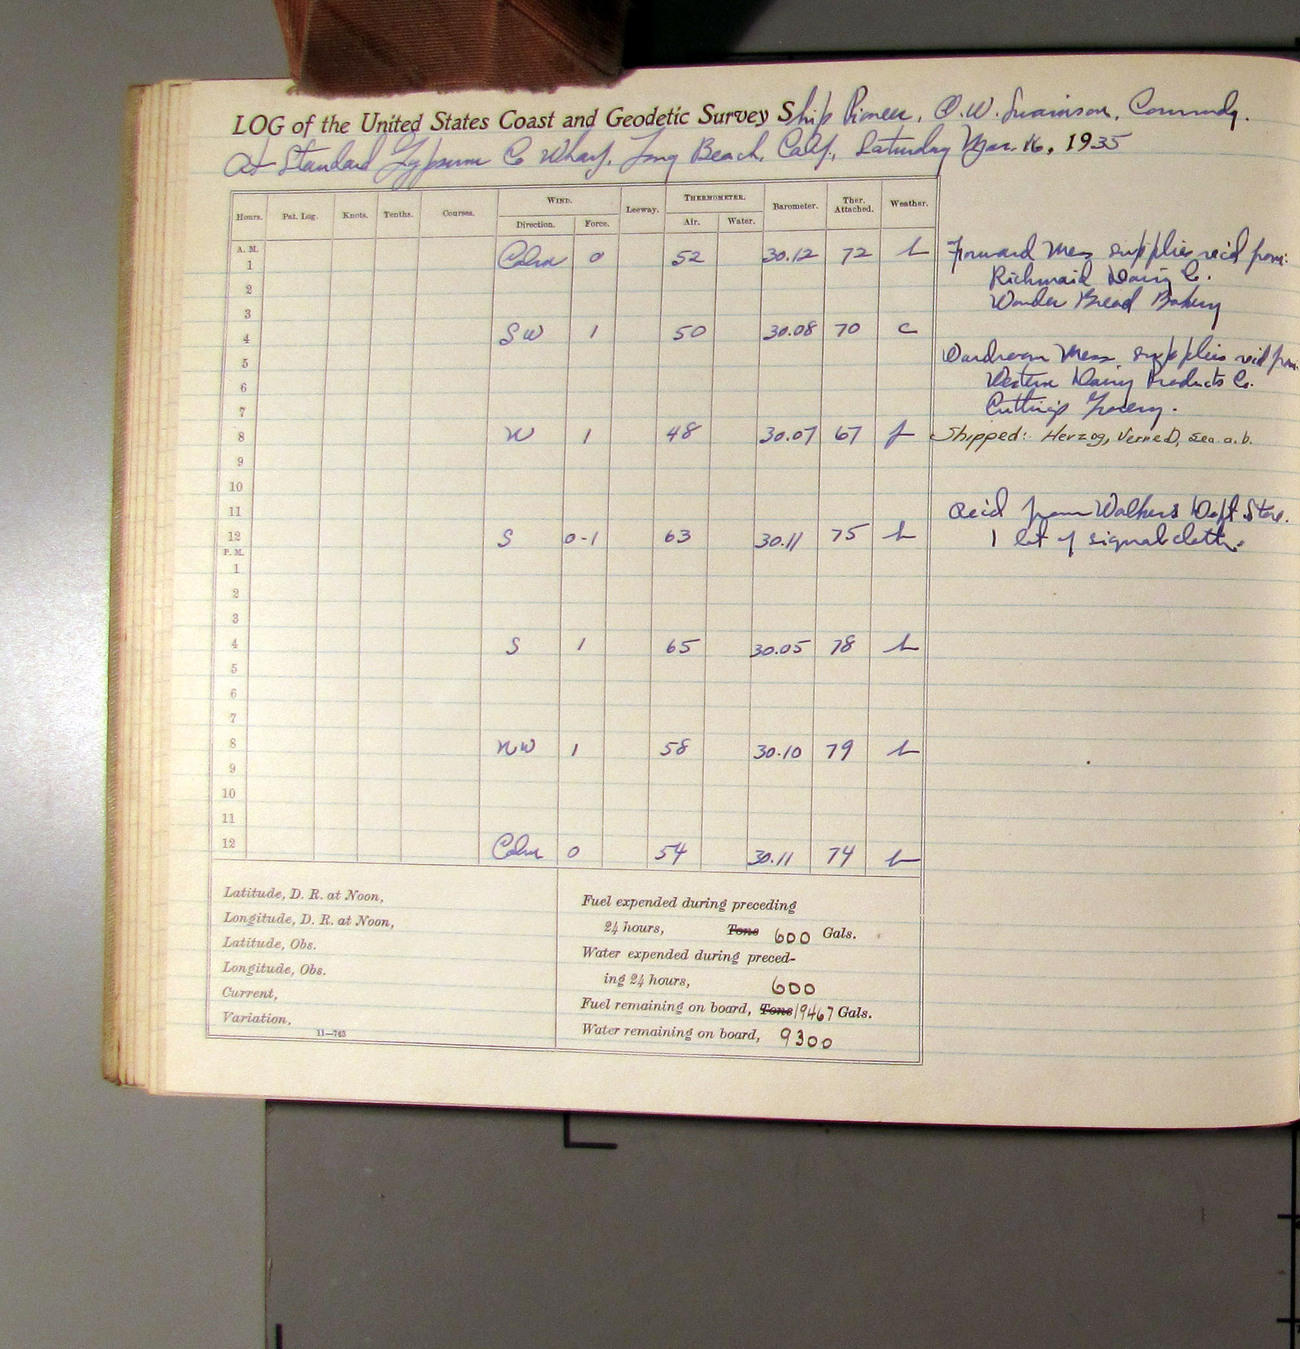 LOG of the United States Coast and Geodetic Survey Ship Pioneer, O. W. Swainson, Commdg.
At Standard Gypsum Co Wharf, Long Beach, Calif., Saturday Mar. 16, 1935
Hours. Pat. Log. Knots. Tenths. Courses. WIND. Leeway. THERMOMETER. Barometer. Ther. Attached. Weather.
Direction. Force. Air. Water.
A. M.
1 Calm 0 52 30.12 72 b
2
3
4 SW 1 50 30.08 70 c
5
6
7
8 W 1 48 30.07 67 f
9
10
11
12 S 0-1 63 30.11 75 b
P. M.
1
2
3
4 S 1 65 30.05 78 b
5
6
7
8 NW 1 58 30.10 79 b
9
10
11
12 Calm 0 54 30.11 74 b
Forward Mess supplies rec'd from:
Richmaid Dairy Co.
Wonder Bread Bakery
Wardroom Mess supplies rec'd from
Western Dairy Products Co.
Cutting's Grocery.
Shipped: Herzog, Verne D, Sea. a.b.
Rec'd from Walkers Dept Store.
1 lot of signal cloth.
Latitude, D. R. at Noon,
Longitude, D. R. at Noon,
Latitude, Obs.
Longitude, Obs.
Current,
Variation,
11—765
Fuel expended during preceding
24 hours, Tons 600 Gals.
Water expended during preced-
ing 24 hours, 600
Fuel remaining on board, Tons 19467 Gals.
Water remaining on board, 9300